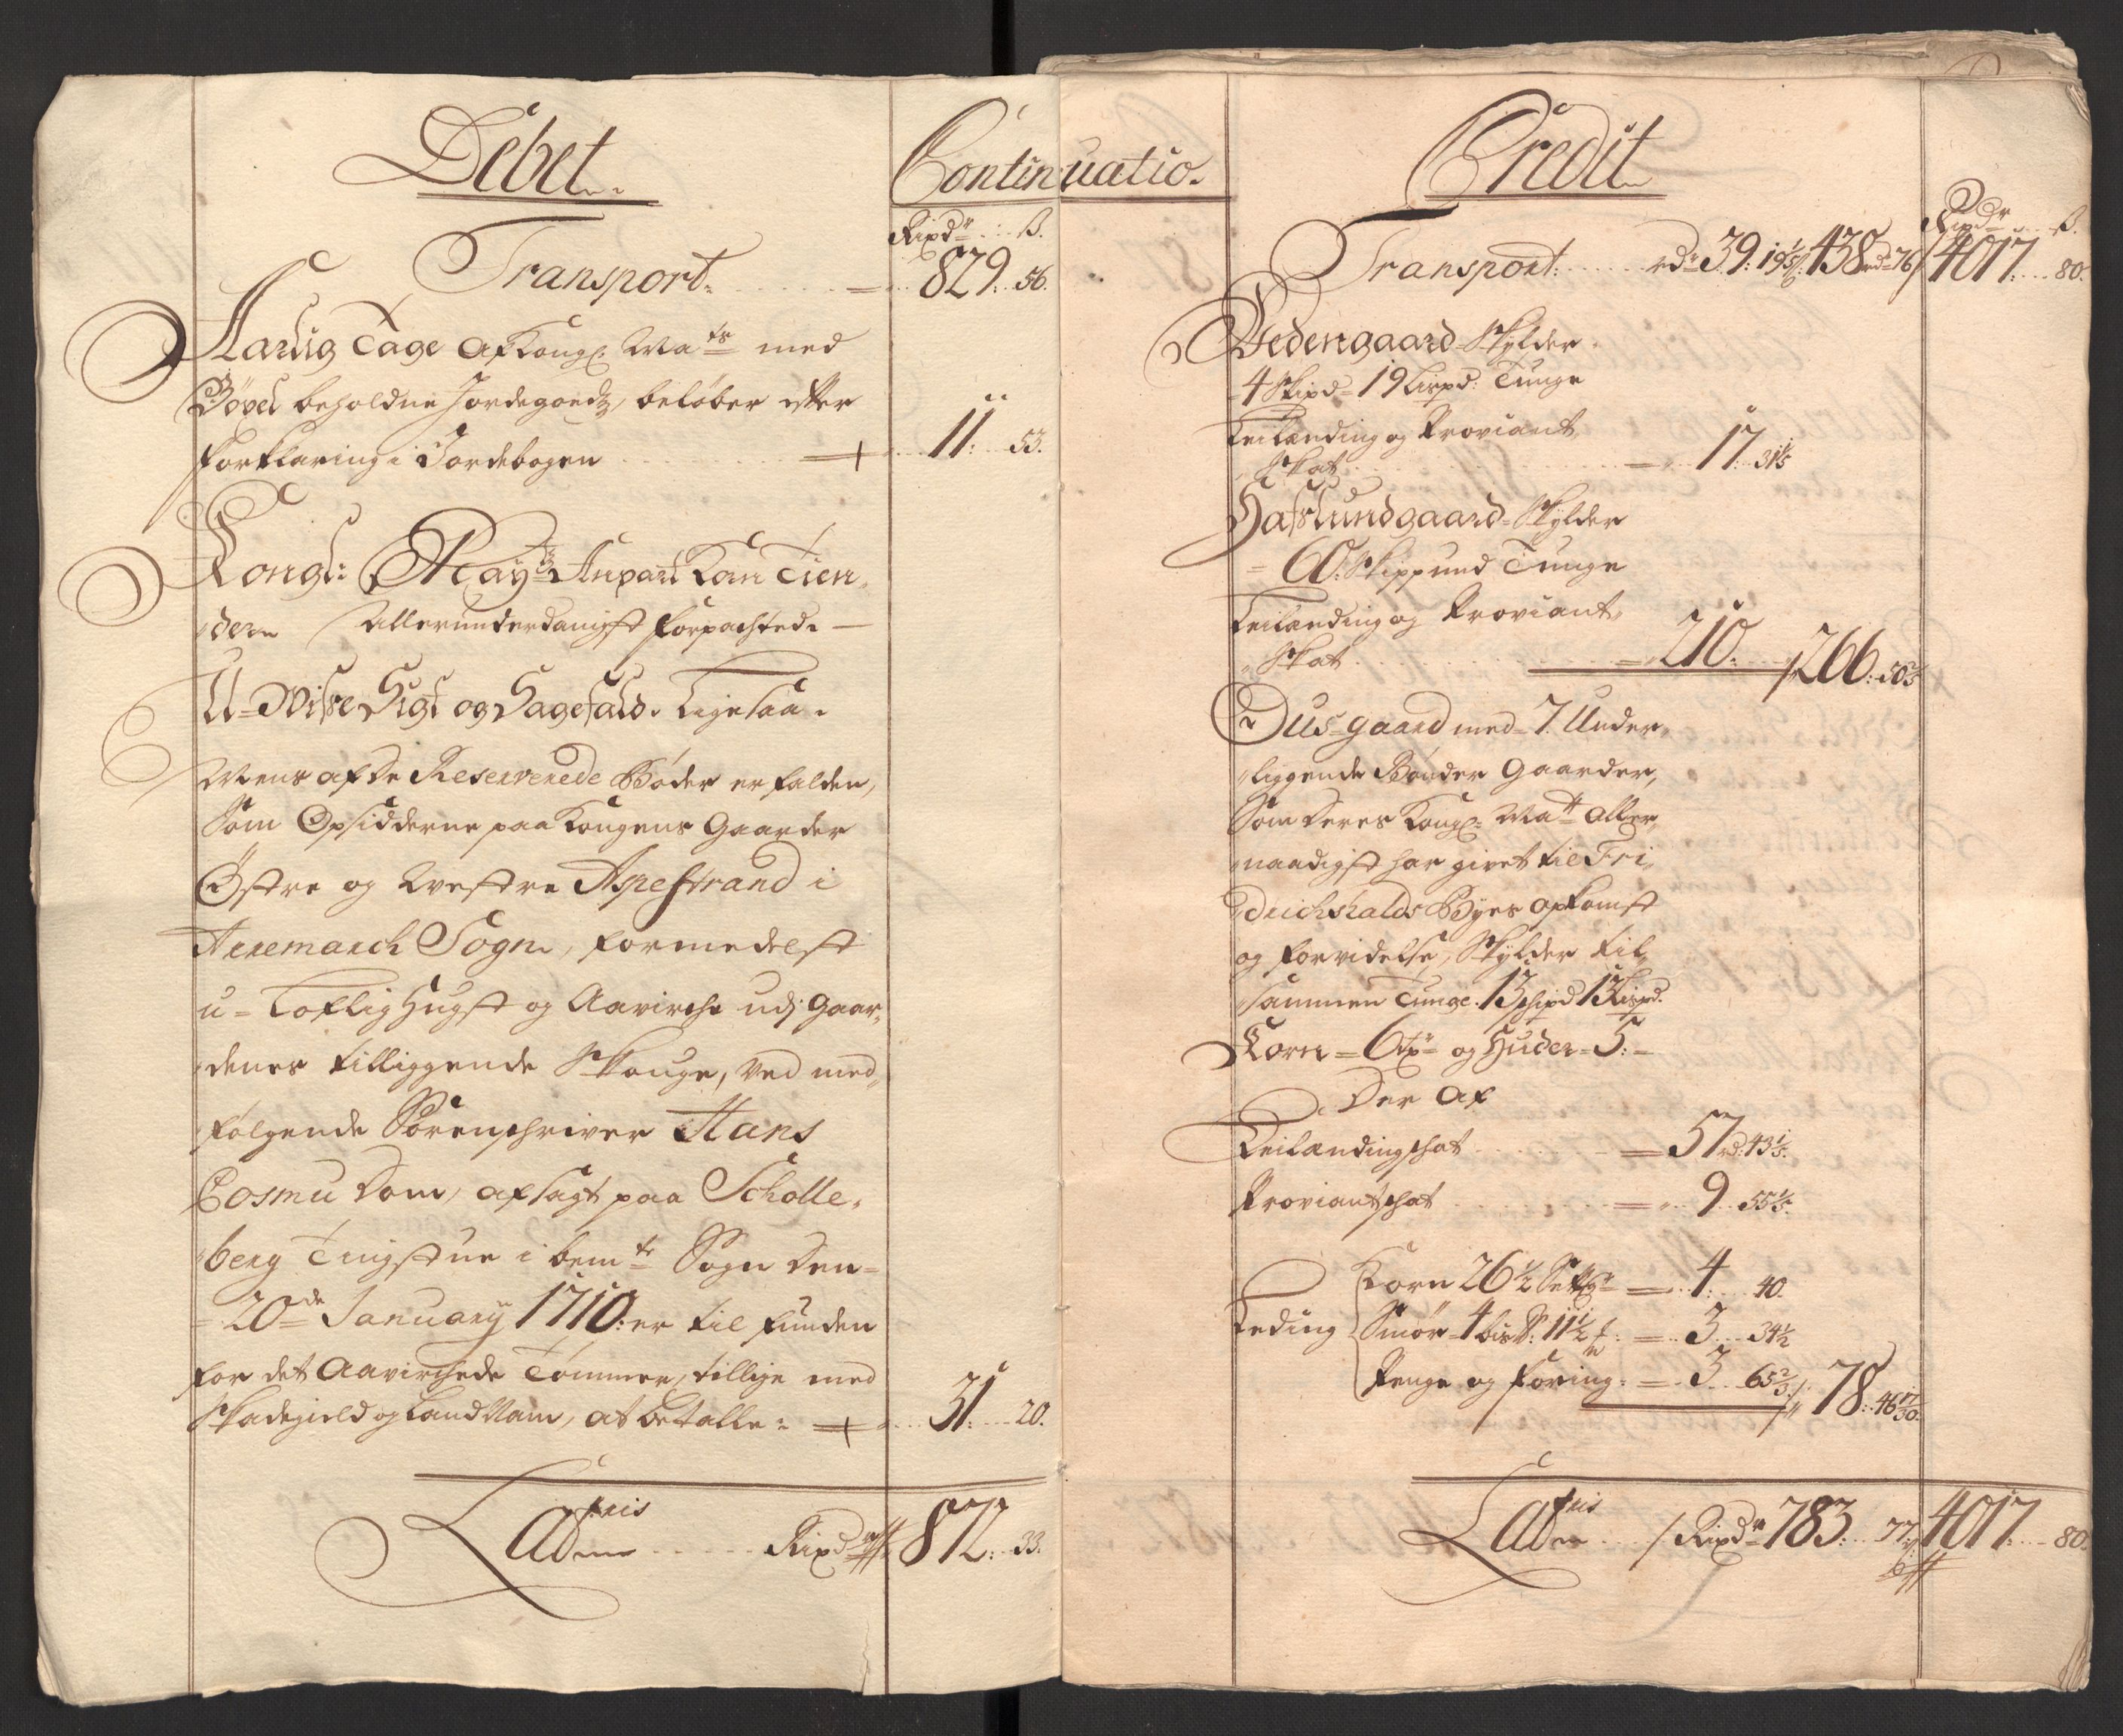 Debet
Continuatio.
Rixdr ß.
Transport. 829. 56.
Aarlig Tage af Kongl. Mats med
Bøxel beholdne Jordegoedtz, beløber efter
forklaring i Jordebogen 11. 53.
Kongl: Mayts Anpart Kan Tien,
den Allerunderdanigst forpachted.
U-Visse Sigt og Sagefald. Ligesaa.
Mens af De Reserverede Bøder er falden,
Som Opsidderne paa Kongens Gaarder
Østre og Westre Aspestrand i
Aremarch Sogn, formedelst
u-Loflig Hugst og Aavirche udj Gaar,
denes tilliggende Skouge, ved med,
følgende Sorenschriver Hans
Cosmu Dom, afsagt paa Scholle,
berg Tingstue i bemte Sogn Den
20de January 1710. er tilfunden
for det Aavirchede Tømmer, tillige med
Skadegield og Landnam, at betalle: 31. 20.
Lateris Rixdr 872. 33.
Credit
Rixdr ß.
Transport: rdr 39. 19 1/5 ß. 438 rd 76 / 4017. 80.
Wedengaard Skylder
4 Skipd 19 Lispd. Tunge
Leilænding og Proviant
Skat 17. 31 1/5
Hafslundgaard Skylder
60. Skippund Tunge
Leilænding og Proviant,
Skat 210. / 266. 50 2/5
Dus-gaard med 7. Under,
liggende Bønder Gaarder,
Som Deres Kongl. Matt Aller,
naadigst har givet til Fri,
drichshalds Byes opkomst
og forvidelse, Skylder til,
sammen Tunge. 13 schipd 13 Lispd.
Korn 6 tr og Huder 5.
Der af
Leilændingschat 57 rd. 43 1/5.
Proviantschat 9. 55 1/5.
Leding
Korn 26 1/2 Setting 4. 40.
Smør 4 bis℔: 11 1/2 3. 34 1/2
Penge og foring. 3. 65 2/3 / 78. 46 17/30.
Lateris / Rixdr 783. 77. 4017. 80.